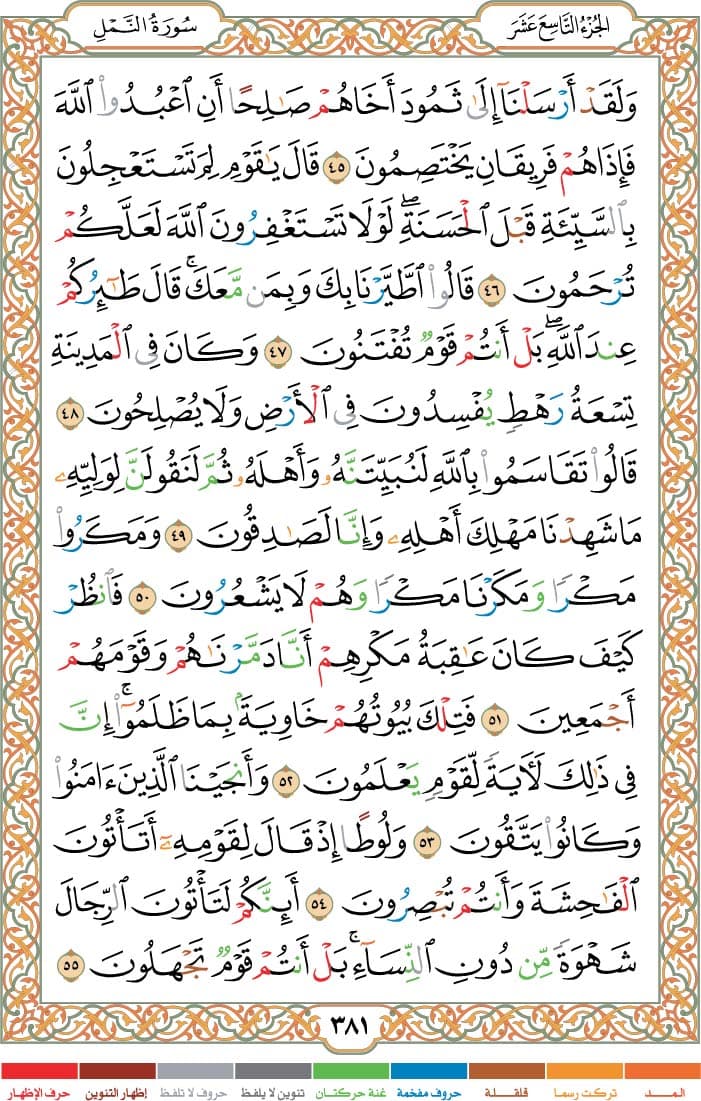 الجزء التاسع عشر
سورة النمل
وَلَقَدْ أَرْسَلْنَآ إِلَىٰ ثَمُودَ أَخَاهُمْ صَٰلِحًا أَنِ ٱعْبُدُوا۟ ٱللَّهَ
فَإِذَا هُمْ فَرِيقَانِ يَخْتَصِمُونَ ٤٥ قَالَ يَٰقَوْمِ لِمَ تَسْتَعْجِلُونَ
بِٱلسَّيِّئَةِ قَبْلَ ٱلْحَسَنَةِ ۖ لَوْلَا تَسْتَغْفِرُونَ ٱللَّهَ لَعَلَّكُمْ
تُرْحَمُونَ ٤٦ قَالُوا۟ ٱطَّيَّرْنَا بِكَ وَبِمَن مَّعَكَ ۚ قَالَ طَٰٓئِرُكُمْ
عِندَ ٱللَّهِ ۖ بَلْ أَنتُمْ قَوْمٌ تُفْتَنُونَ ٤٧ وَكَانَ فِى ٱلْمَدِينَةِ
تِسْعَةُ رَهْطٍ يُفْسِدُونَ فِى ٱلْأَرْضِ وَلَا يُصْلِحُونَ ٤٨
قَالُوا۟ تَقَاسَمُوا۟ بِٱللَّهِ لَنُبَيِّتَنَّهُۥ وَأَهْلَهُۥ ثُمَّ لَنَقُولَنَّ لِوَلِيِّهِۦ
مَا شَهِدْنَا مَهْلِكَ أَهْلِهِۦ وَإِنَّا لَصَٰدِقُونَ ٤٩ وَمَكَرُوا۟
مَكْرًا وَمَكَرْنَا مَكْرًا وَهُمْ لَا يَشْعُرُونَ ٥٠ فَٱنظُرْ
كَيْفَ كَانَ عَٰقِبَةُ مَكْرِهِمْ أَنَّا دَمَّرْنَٰهُمْ وَقَوْمَهُمْ
أَجْمَعِينَ ٥١ فَتِلْكَ بُيُوتُهُمْ خَاوِيَةًۢ بِمَا ظَلَمُوٓا۟ ۗ إِنَّ
فِى ذَٰلِكَ لَءَايَةً لِّقَوْمٍ يَعْلَمُونَ ٥٢ وَأَنجَيْنَا ٱلَّذِينَ ءَامَنُوا۟
وَكَانُوا۟ يَتَّقُونَ ٥٣ وَلُوطًا إِذْ قَالَ لِقَوْمِهِۦٓ أَتَأْتُونَ
ٱلْفَٰحِشَةَ وَأَنتُمْ تُبْصِرُونَ ٥٤ أَئِنَّكُمْ لَتَأْتُونَ ٱلرِّجَالَ
شَهْوَةً مِّن دُونِ ٱلنِّسَآءِ ۚ بَلْ أَنتُمْ قَوْمٌ تَجْهَلُونَ ٥٥
٣٨١
المــــد تركت رسما قلقـــلة حروف مفخمة غنة حركتـان تنوين لا يلفظ حروف لا تلفظ إظهار التنوين حرف الإظهار